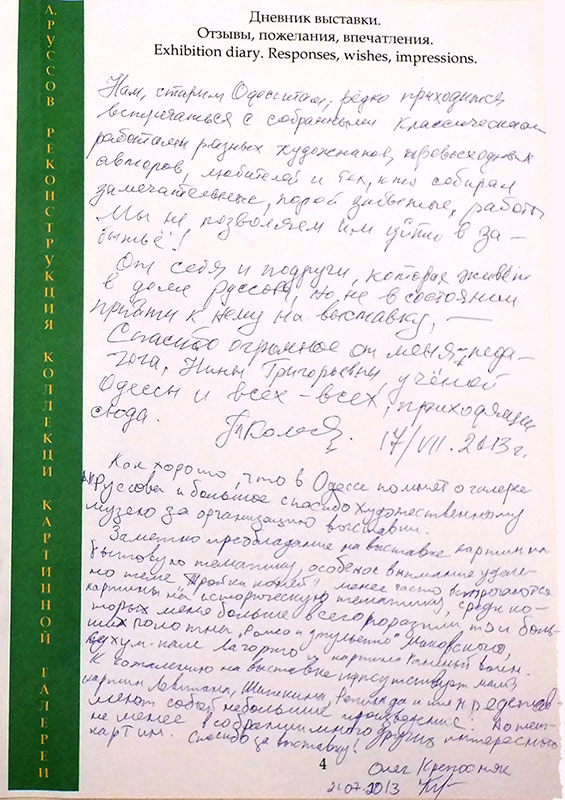 А. РУССОВ РЕКОНСТРУКЦИЯ КОЛЛЕКЦИ КАРТИННОЙ ГАЛЕРЕИ
Дневник выставки.
Отзывы, пожелания, впечатления.
Exhibition diary. Responses, wishes, impressions.
Нам, старым Одесситам, редко приходится
встречаться с собранными классическими
работами разных художников, превосходных
авторов, любителей и тех, кто собирал
замечательные, порой забытые, работы
Мы не позволяем им уйти в за-
бытьё!
От себя и подруги, которая живёт
в доме Руссова, но не в состоянии
прийти к нему на выставку, —
Спасибо огромное от меня – педа-
гога, Нины Григорьевны, учёной
Одессы и всех – всех, приходящих
сюда.
17/VII. 2013 г.
Как хорошо, что в Одессе помнят о галерее
Руссова и большое спасибо художественному
музею за организацию выставки.
Заметно преобладание на выставке картин на
бытовую тематику, особенное внимание уделе-
но теме "Тройки коней" менее часто встречаются
картины на историческую тематику, среди ко-
торых меня больше всего поразили три боль-
ших полотна "Ромео и Джульетта" Маковского,
и картина Раненый воин.
К сожалению на выставке присутствует мало
картин Левитана, Шишкина, и те представ-
ляют собой небольшие произведения! Но тем
не менее в собрании много других интересных
картин. Спасибо за выставку!
4
Олег Крепосняк
21.07.2013